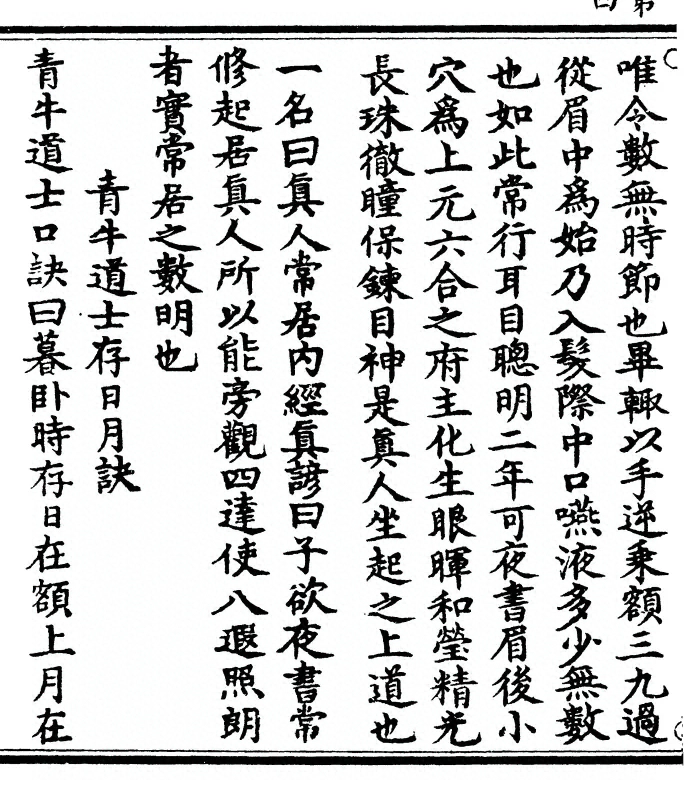 唯令數無時節也畢輙以手逆乘額三九過
從眉中爲始乃入髮際中口嚥液多少無數
也如此常行耳目聰明二年可夜書眉後小
穴爲上元六合之府主化生眼暉和瑩精光
長珠徹瞳保鍊目神是眞人坐起之上道也
一名曰眞人常居内經眞諺曰子欲夜書常
修起居眞人所以能旁觀四達使八遐照朗
者實常居之數明也
青牛道士存日月訣
青牛道士口訣曰暮卧時存日在額上月在